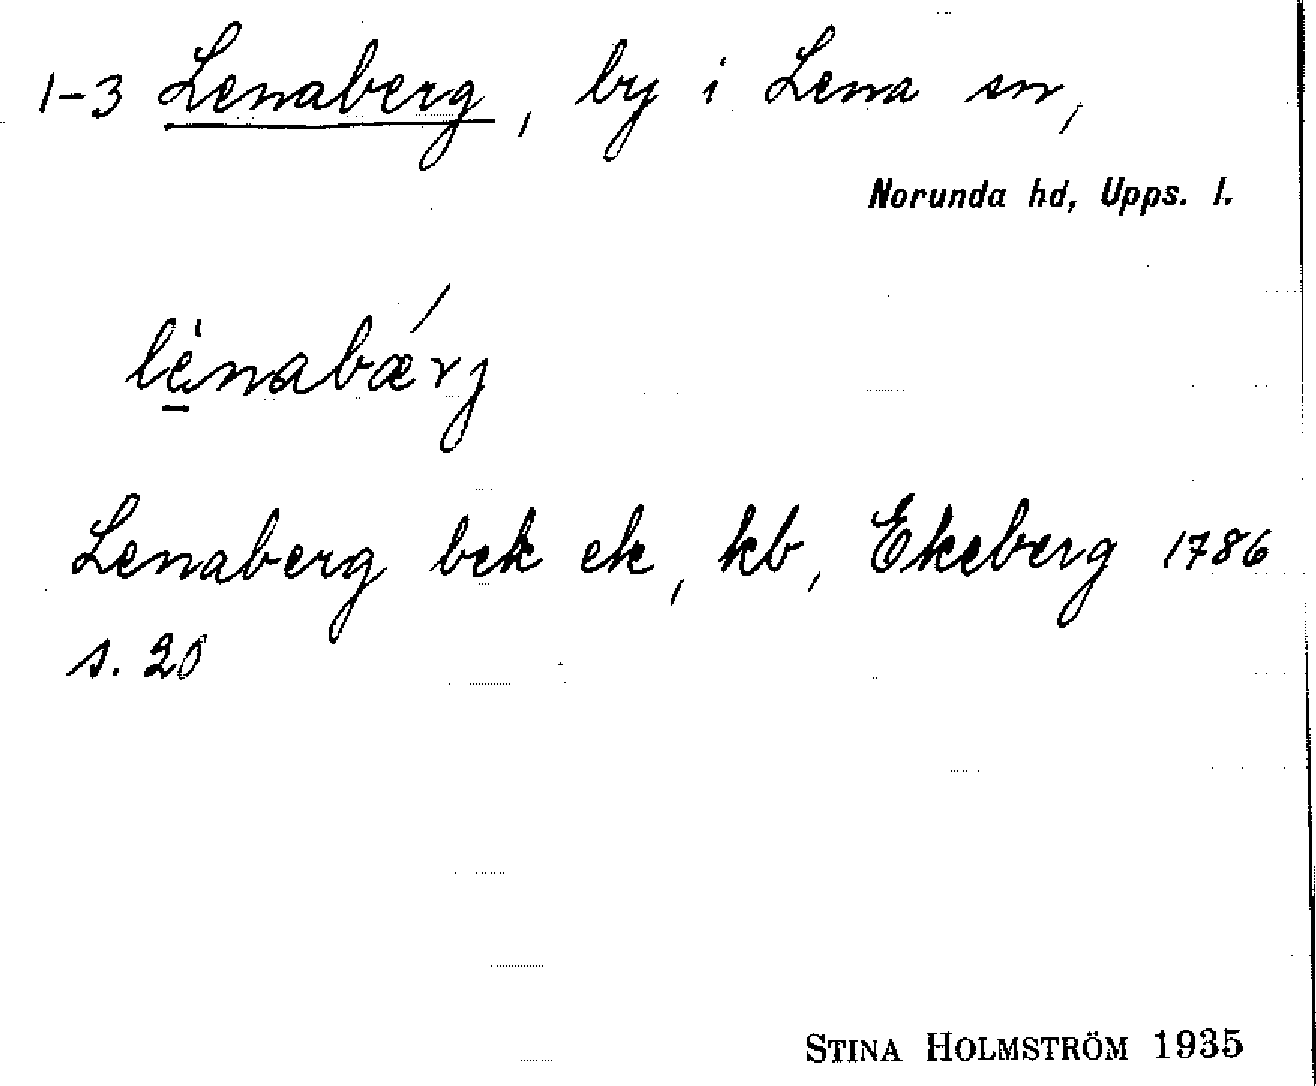 1-3 Lenaberg, by i Lena sn,
Norunda hd, Upps. l.
lènabǽrj
Lenaberg bek ek, kb, Ekeberg 1786
s. 20
STINA HOLMSTRÖM 1935